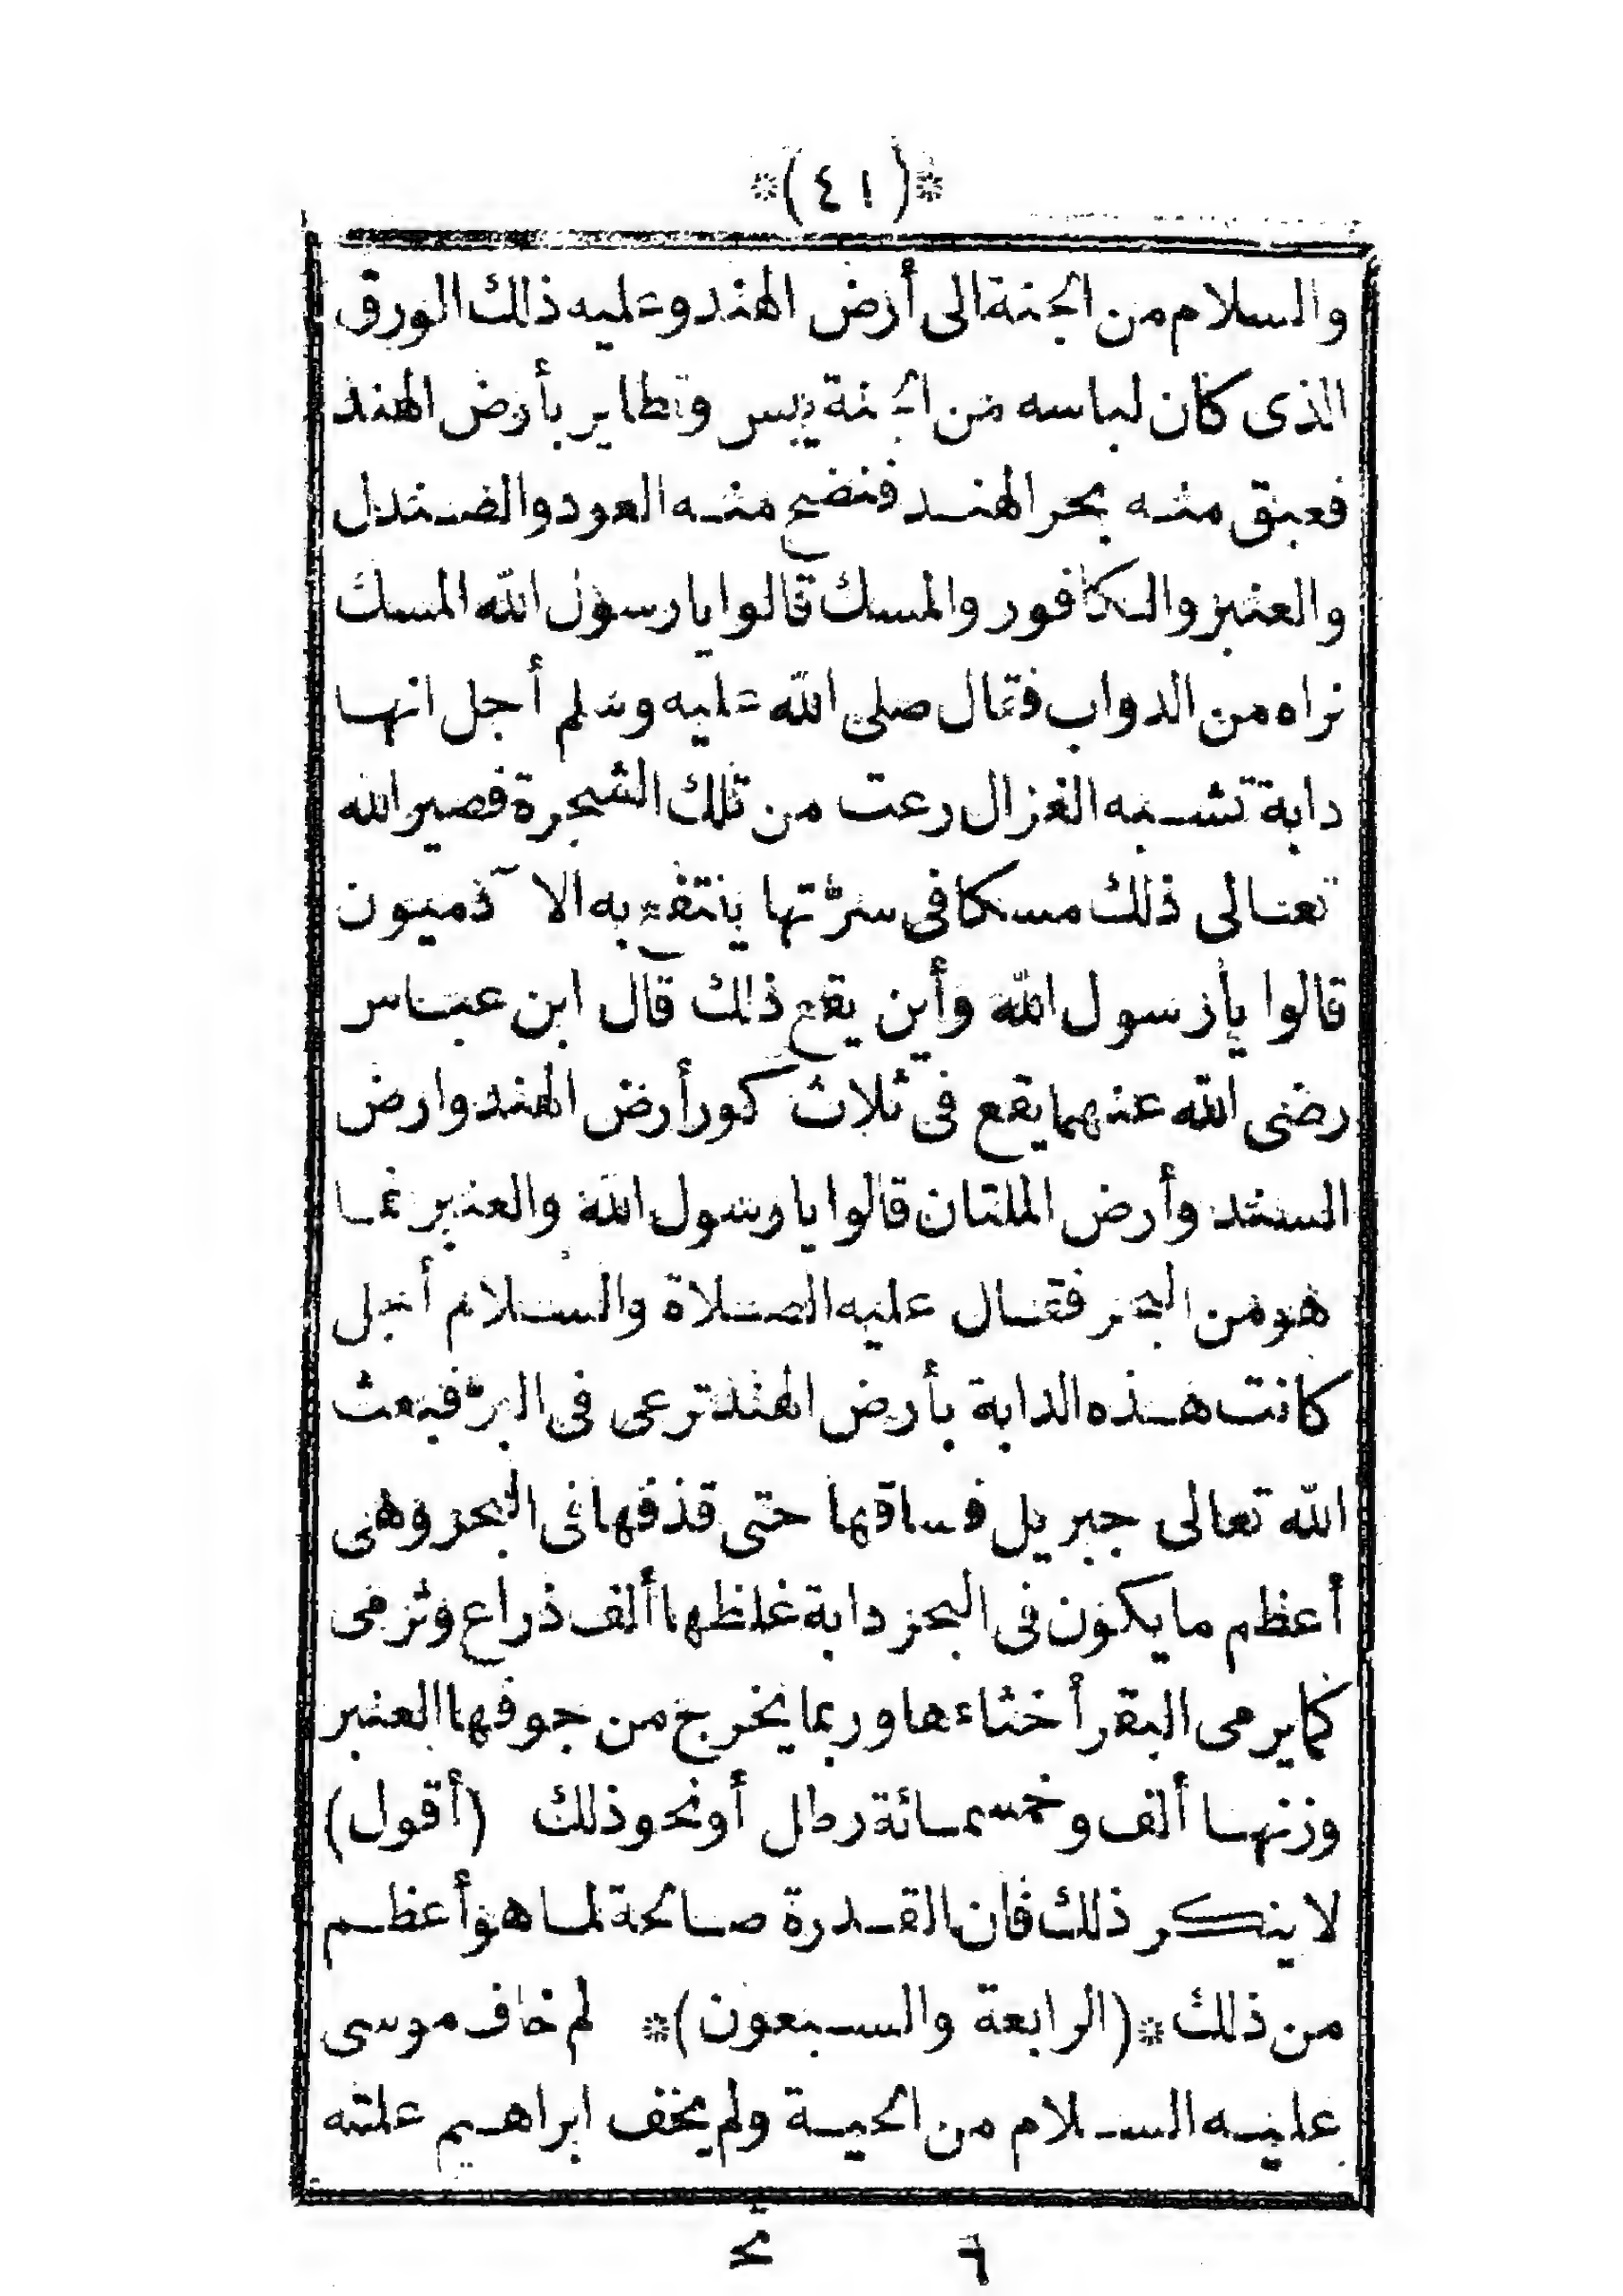 *(٤١)*
والسلام من الجنة الى أرض الهند وعليه ذلك الورق
الذى كان لباسه من الجنة يبس وتطاير بأرض الهند
فعبق منه بحر الهند فنضج منه العود والصندل
والعنبر والكافور والمسك قالوا يارسول الله المسك
نراه من الدواب فقال صلى الله عليه وسلم أجل انها
دابة تشبه الغزال رعت من تلك الشجرة فصير الله
تعالى ذلك مسكا فى سرّتها ينتفع به الآدميون
قالوا يارسول الله وأين يقع ذلك قال ابن عباس
رضى الله عنهما يقع فى ثلاث كور أرض الهند وارض
السند وأرض الملتان قالوا يارسول الله والعنبر انما
هو من البحر فقال عليه الصلاة والسلام أجل
كانت هذه الدابة بأرض الهند ترعى فى البرّ فبعث
الله تعالى جبريل فساقها حتى قذفها فى البحر وهى
أعظم ما يكون فى البحر دابة غلظها ألف ذراع وترمى
كما يرمى البقر أخثاءها وربما يخرج من جوفها العنبر
وزنها ألف وخمسمائة رطل أو نحو ذلك (أقول)
لا ينكر ذلك فان القدرة صالحة لما هو أعظم
من ذلك *(الرابعة والسبعون)* لم خاف موسى
عليه السلام من الحية ولم يخف ابراهيم عليه
٦